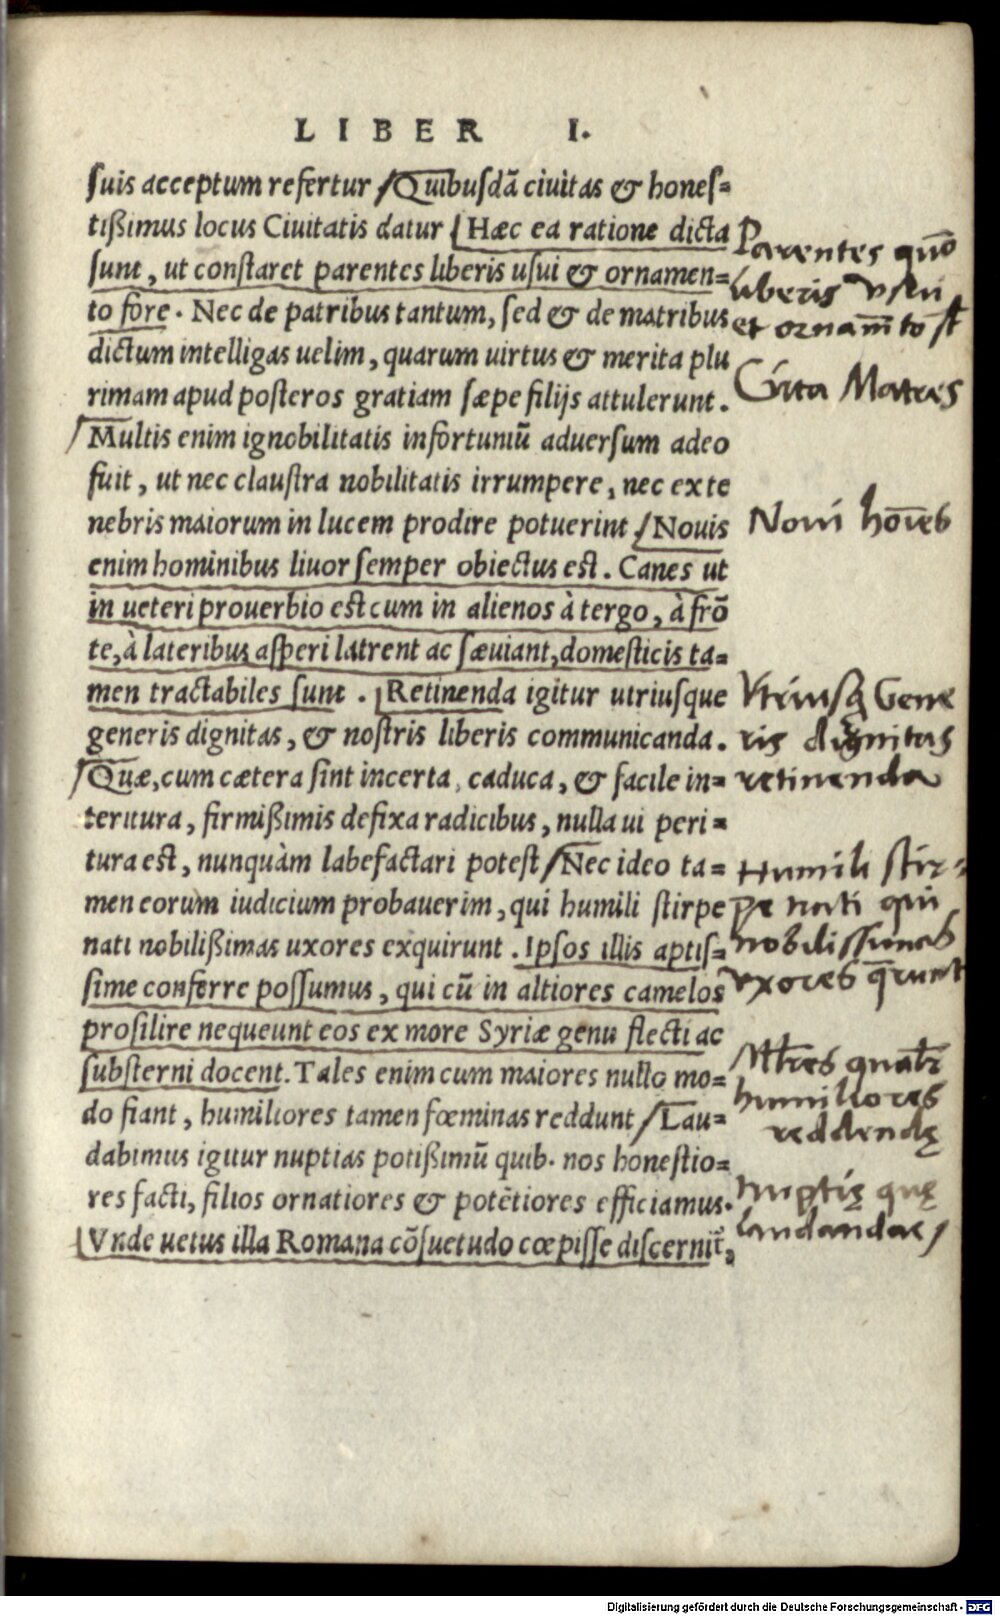 LIBER I.
suis acceptum refertur /Quibusdā ciuitas & hones-
tißimus locus Ciuitatis datur [Hæc ea ratione dicta
sunt, ut constaret parentes liberis usui & ornamen-
to fore. Nec de patribus tantum, sed & de matribus
dictum intelligas uelim, quarum uirtus & merita plu
rimam apud posteros gratiam sæpe filijs attulerunt.
/Multis enim ignobilitatis infortuniū aduersum adeo
fuit, ut nec claustra nobilitatis irrumpere, nec ex te
nebris maiorum in lucem prodire potuerint /Nouis
enim hominibus liuor semper obiectus est. Canes ut
in ueteri prouerbio est cum in alienos à tergo, à frō
te, à lateribus asperi latrent ac sæuiant, domesticis ta-
men tractabiles sunt. [Retinenda igitur utriusque
generis dignitas, & nostris liberis communicanda.
/Quæ, cum cætera sint incerta, caduca, & facile in-
teritura, firmißimis defixa radicibus, nulla ui peri-
tura est, nunquàm labefactari potest /Nec ideo ta-
men eorum iudicium probauerim, qui humili stirpe
nati nobilißimas uxores exquirunt. Ipsos illis aptis-
sime conferre possumus, qui cū in altiores camelos
prosilire nequeunt eos ex more Syriæ genu flecti ac
substerni docent. Tales enim cum maiores nullo mo-
do fiant, humiliores tamen fœminas reddunt /Lau-
dabimus igitur nuptias potißimū quib. nos honestio-
res facti, filios ornatiores & potētiores efficiamus.
[Vnde uetus illa Romana cōsuetudo cœpisse discernit̄,
Parentes quō
liberis vsui
et ornam̄to st̄
Matres
Noui hōīes
Vtriusq Gene
ris dignitas
retinenda
Humili stir-
pe nati qui
nobilissimas
vxores q̄runt
humiliores
reddendę
Nuptię quę
laudandae /
Digitalisierung gefördert durch die Deutsche Forschungsgemeinschaft - DFG